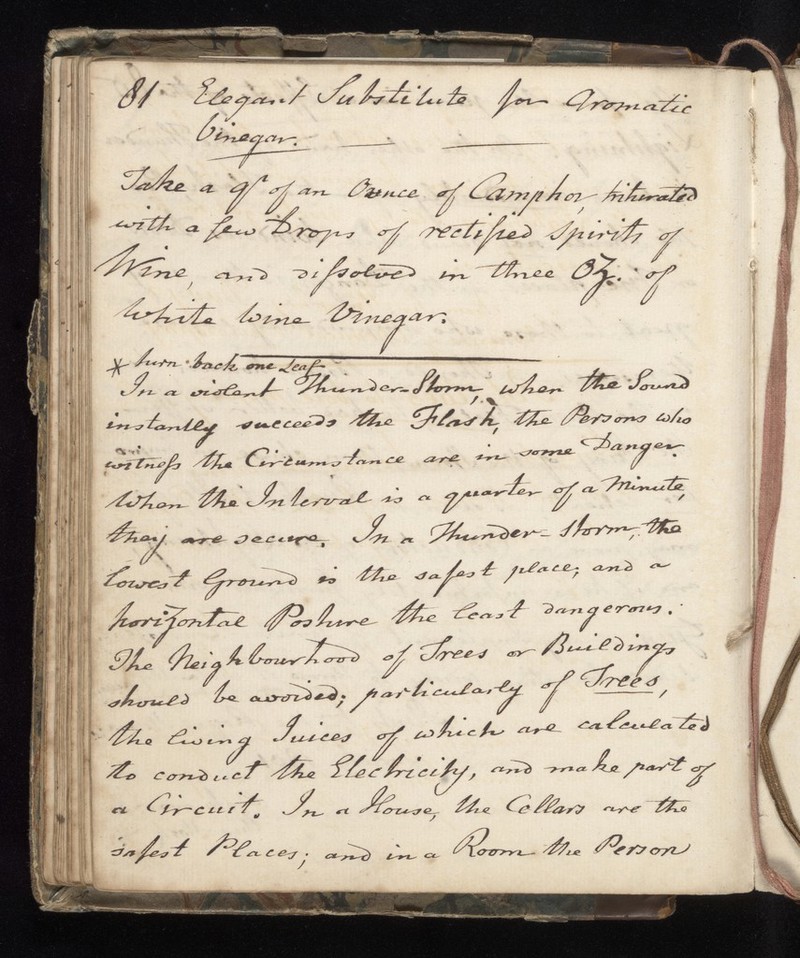 81 Elegant Substitute for Aromatic
Vinegar.
Take a qr of an Ounce of Camphor, triturated
with a few Drops of rectified Spirits of
Wine, and dissolved in three Oz. of
White Wine Vinegar.
* turn back one Leaf
In a violent Thunder-Storm, when the Sound
instantly succeeds the Flash, the Persons who
witness the Circumstance are in some Danger.
When the Interval is a quarter of a Minute,
they are secure. In a Thunder-Storm, the
lowest Ground is the safest place; and a
horizontal Posture the least dangerous.
The Neighbourhood of Trees or Buildings
should be avoided; particularly of Trees,
the living Juices of which are calculated
to conduct the Electricity, and make part of
a Circuit. In a House, the Cellars are the
safest Places; and in a Room the Person